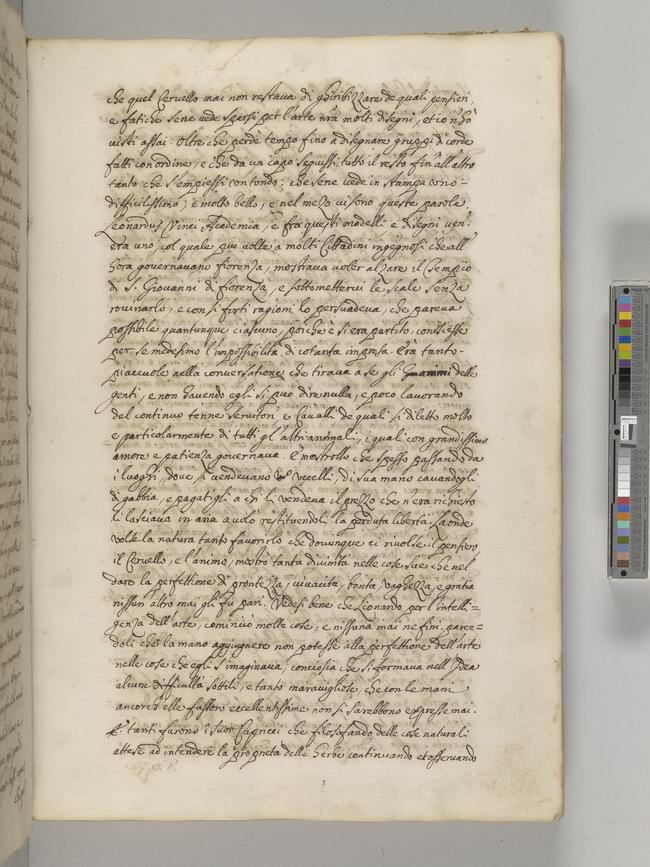 che quel Cervello mai non restava di ghiribizzare de quali pensieri,
e fatiche sene vede sparsi per l'arte nrã molti disegni, et io n'hò
visti assai. Oltre che perdè tempo fino a disegnare gruppi di corde
fatti con ordine, e che da un capo seguissi tutto il resto fin'all altro
tanto che s'empiessi un tondo; che sene vede in stampa uno
difficilissimo, e molto bello, e nel mezo vi sono queste parole
Leonardus Vinci Accademia, e fra questi modelli e disegni ven'
era uno, col quale piu volte a molti Cittadini ingegnosi che all'
hora governavano fiorenza, mostrava voler alzare il Tempio
di S. Giovanni di fiorenza, e sottomettervi le scale senza
rovinarlo, e con si forti ragioni lo persuadeva, che pareva
possibile quantunque ciascuno, poiche è si era partito, conoscesse
per se medesimo l'impossibilità di cotanta impresa. Era tanto
piacevole nella conversatione, che tirava a se gli animi delle
genti, e non havendo egli si può dir nulla, e poco lavorando
del continuo tenne servitori e Cavalli de quali si dilettò molto
e particolarmente di tutti gl'altri animali, i quali con grandissimo
amore e patienza governava. E mostrollo che spesso passando da
i luoghi, dove si vendevano Uccelli, di sua mano cavandogli
di gabbia, e pagatigli a chi li vendeva il prezzo che n'era richiesto
li lasciava in aria a volo restituendoli la perduta libertà. La onde
volse la natura tanto favorirlo che dovunque ei rivolse il pensiero
il Cervello, e l'animo, mostrò tanta divinità nelle cose sue che nel
dare la perfettione di prontezza, vivacità, bontà, vaghezza, e gratia
nissun altro mai gli fu pari. Vedesi bene che Lionardo per l'intelli=
genza dell'arte, cominciò molte cose, e nissuna mai ne finì paren=
doli che la mano aggiugnere non potesse alla perfettione dell'arte
nelle cose che egli s'imaginava, conciosia che si formava nell'Idea
alcune difficultà sottili, e tanto maravigliose, che con le mani
ancorch'elle fussero eccellentissime non si sarebbono espresse mai.
E tanti furono i suoi Capricci che filosofando delle cose naturali
attese ad intendere la proprietà delle herbe continuando et osservando